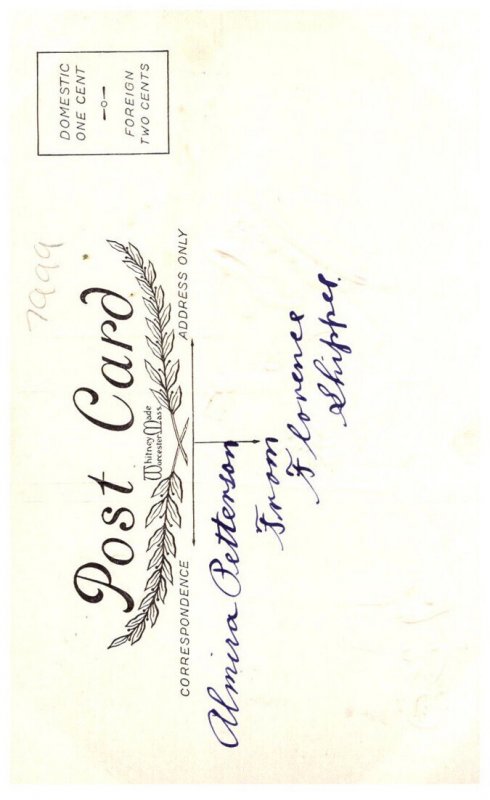 DOMESTIC
ONE CENT
—o—
FOREIGN
TWO CENTS
7999
Post Card
Whitney Made
Worcester Mass.
CORRESPONDENCE
ADDRESS ONLY
Almira Petterson
From
Florence
Shippee.